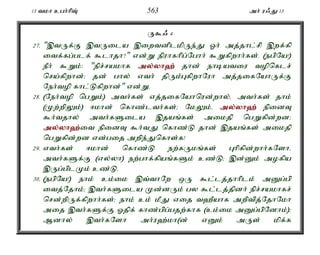 13 வமா உபர்ரீஷ் 563 அர் ரஃது 13
ருகூஃ 4
27. "இவருக்கு இவருடைய இறைவனிடமிருந்து ஓர் அத்தாட்சி இறக்கி
வைக்கப்படக் கூடாதா!" என்று நிராகரிப்போர் கூறுகிறார்கள். (நபியே)
நீர் கூறும்: "நிச்சயமாக அல்லாஹ் தான் நாடியவரை வழிகெடச்
செய்கிறான்; தன் பால் எவர் திரும்புகிறாரோ அத்தகையோருக்கு
நேர்வழி காட்டுகிறான்" என்று.
28. (நேர்வழி பெறும்) அவர்கள் எத்தகையோரென்றால், அவர்கள் தாம்
(முற்றிலும்) ஈமான் கொண்டவர்கள்; மேலும், அல்லாஹ் நினைவு
கூர்வதால் அவர்களுடைய இதயங்கள் அமைதி பெறுகின்றன;
அல்லாஹ்வை நினைவு கூர்வது கொண்டு தான் இதயங்கள் அமைதி
பெறுகின்றன என்பதை அறிந்துகொள்க!
29. எவர்கள் ஈமான் கொண்டு நற்கருமங்கள் புரிகின்றார்களோ,
அவர்களுக்கு (எல்லா) நற்பாக்கியங்களும் உண்டு; இன்னும் அழகிய
இருப்பிடமும் உண்டு.
30. (நபியே) நாம் உம்மை இவ்வாறே ஒரு கூட்டத்தாரிடம் அனுப்பி
வைத்தோம்; இவர்களுடைய முன்னரும் பல கூட்டத்தினர் நிச்சயமாகச்
சென்றிருக்கிறார்கள்; நாம் உம் மீது எதை வஹீயாக அறிவித்தோமோ
அதை இவர்களுக்கு ஓதிக் காண்பிப்பதற்காக (உம்மை அனுப்பினோம்);
ஆனால் இவர்களோ அர்ரஹ்மா(ன் எனும் அருள் மிக்க